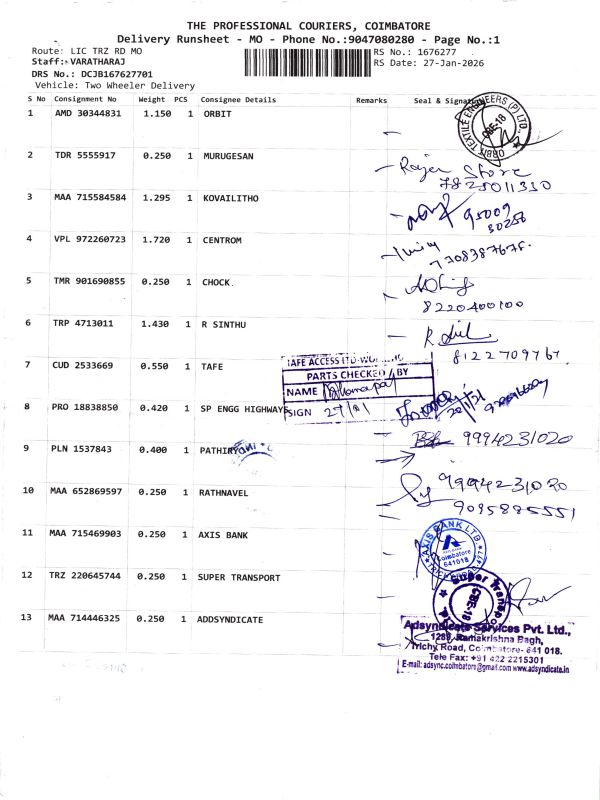 THE PROFESSIONAL COURIERS, COIMBATORE
Delivery Runsheet - MO - Phone No.:9047080280 - Page No.:1
Route: LIC TRZ RD MO
RS No.: 1676277
Staff: VARATHARAJ
RS Date: 27-Jan-2026
DRS No.: DCJB167627701
Vehicle: Two Wheeler Delivery
S No Consignment No Weight PCS Consignee Details Remarks Seal & Signature
1 AMD 30344831 1.150 1 ORBIT
ORBIT TEXTILE ENGINEERS (P) LTD.
CBE-18
2 TDR 5555917 0.250 1 MURUGESAN
Store
7825011350
3 MAA 715584584 1.295 1 KOVAILITHO
95009
30256
4 VPL 972260723 1.720 1 CENTROM
7708387675.
5 TMR 901690855 0.250 1 CHOCK
8220400100
6 TRP 4713011 1.430 1 R SINTHU
R.
8122709767.
7 CUD 2533669 0.550 1 TAFE
TAFE ACCESS LTD
PARTS CHECKED BY
NAME
SIGN 27/01
8 PRO 18838850 0.420 1 SP ENGG HIGHWAYS
9994231020
9 PLN 1537843 0.400 1 PATHIRYON
10 MAA 652869597 0.250 1 RATHNAVEL
9994231020
9095885551
11 MAA 715469903 0.250 1 AXIS BANK
AXIS BANK LTD.
Coimbatore
641018
12 TRZ 220645744 0.250 1 SUPER TRANSPORT
Super Transport
CBE-18
13 MAA 714446325 0.250 1 ADDSYNDICATE
Adsyndicate Services Pvt. Ltd.,
128B, Ramakrishna Bagh,
Trichy Road, Coimbatore- 641 018.
Tele Fax: +91 422 2215301
E-mail: adsync.coimbatore@gmail.com www.adsyndicate.in